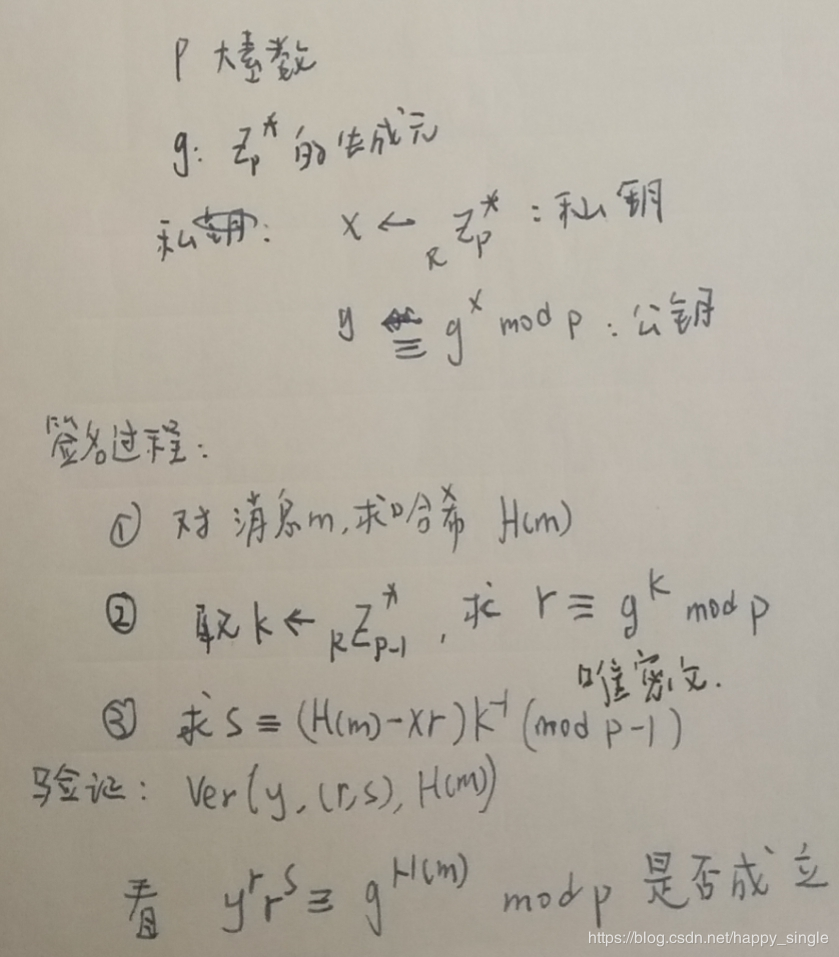 p 大素数
g: Z_p^* 的生成元
私钥: x ←_R Z_p^* : 私钥
y ≡ g^x mod p : 公钥
签名过程:
① 对消息m,求哈希 H(m)
② 取 k ←_R Z_{p-1}^* , 求 r ≡ g^k mod p
唯密文.
③ 求 s ≡ (H(m)-xr)k^{-1} (mod p-1)
验证: Ver(y, (r,s), H(m))
看 y^r r^s ≡ g^{H(m)} mod p 是否成立
https://blog.csdn.net/happy_single